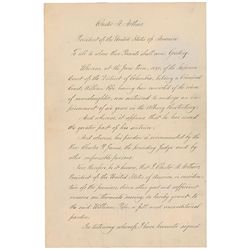 Chester A. Arthur
President of the United States of America
To all to whom these Presents shall come, Greeting:
Whereas, at the June term, 1880, of the Supreme
Court of the District of Columbia, holding a Criminal
Court, William Pope having been convicted of the crime of
manslaughter, was sentenced to undergo an im-
prisonment of six years in the Albany Penitentiary;
And whereas, it appears that he has served
the greater part of his sentence;
And whereas, his pardon is recommended by the
Hon. Charles P. James, the presiding Judge and by
other responsible persons:
Now, therefore, be it known, that I, Chester A. Arthur,
President of the United States of America, in consider-
ation of the premises, divers other good and sufficient
reasons me thereunto moving, do hereby grant to
the said William Pope a full and unconditional
pardon.
In testimony whereof, I have hereunto signed